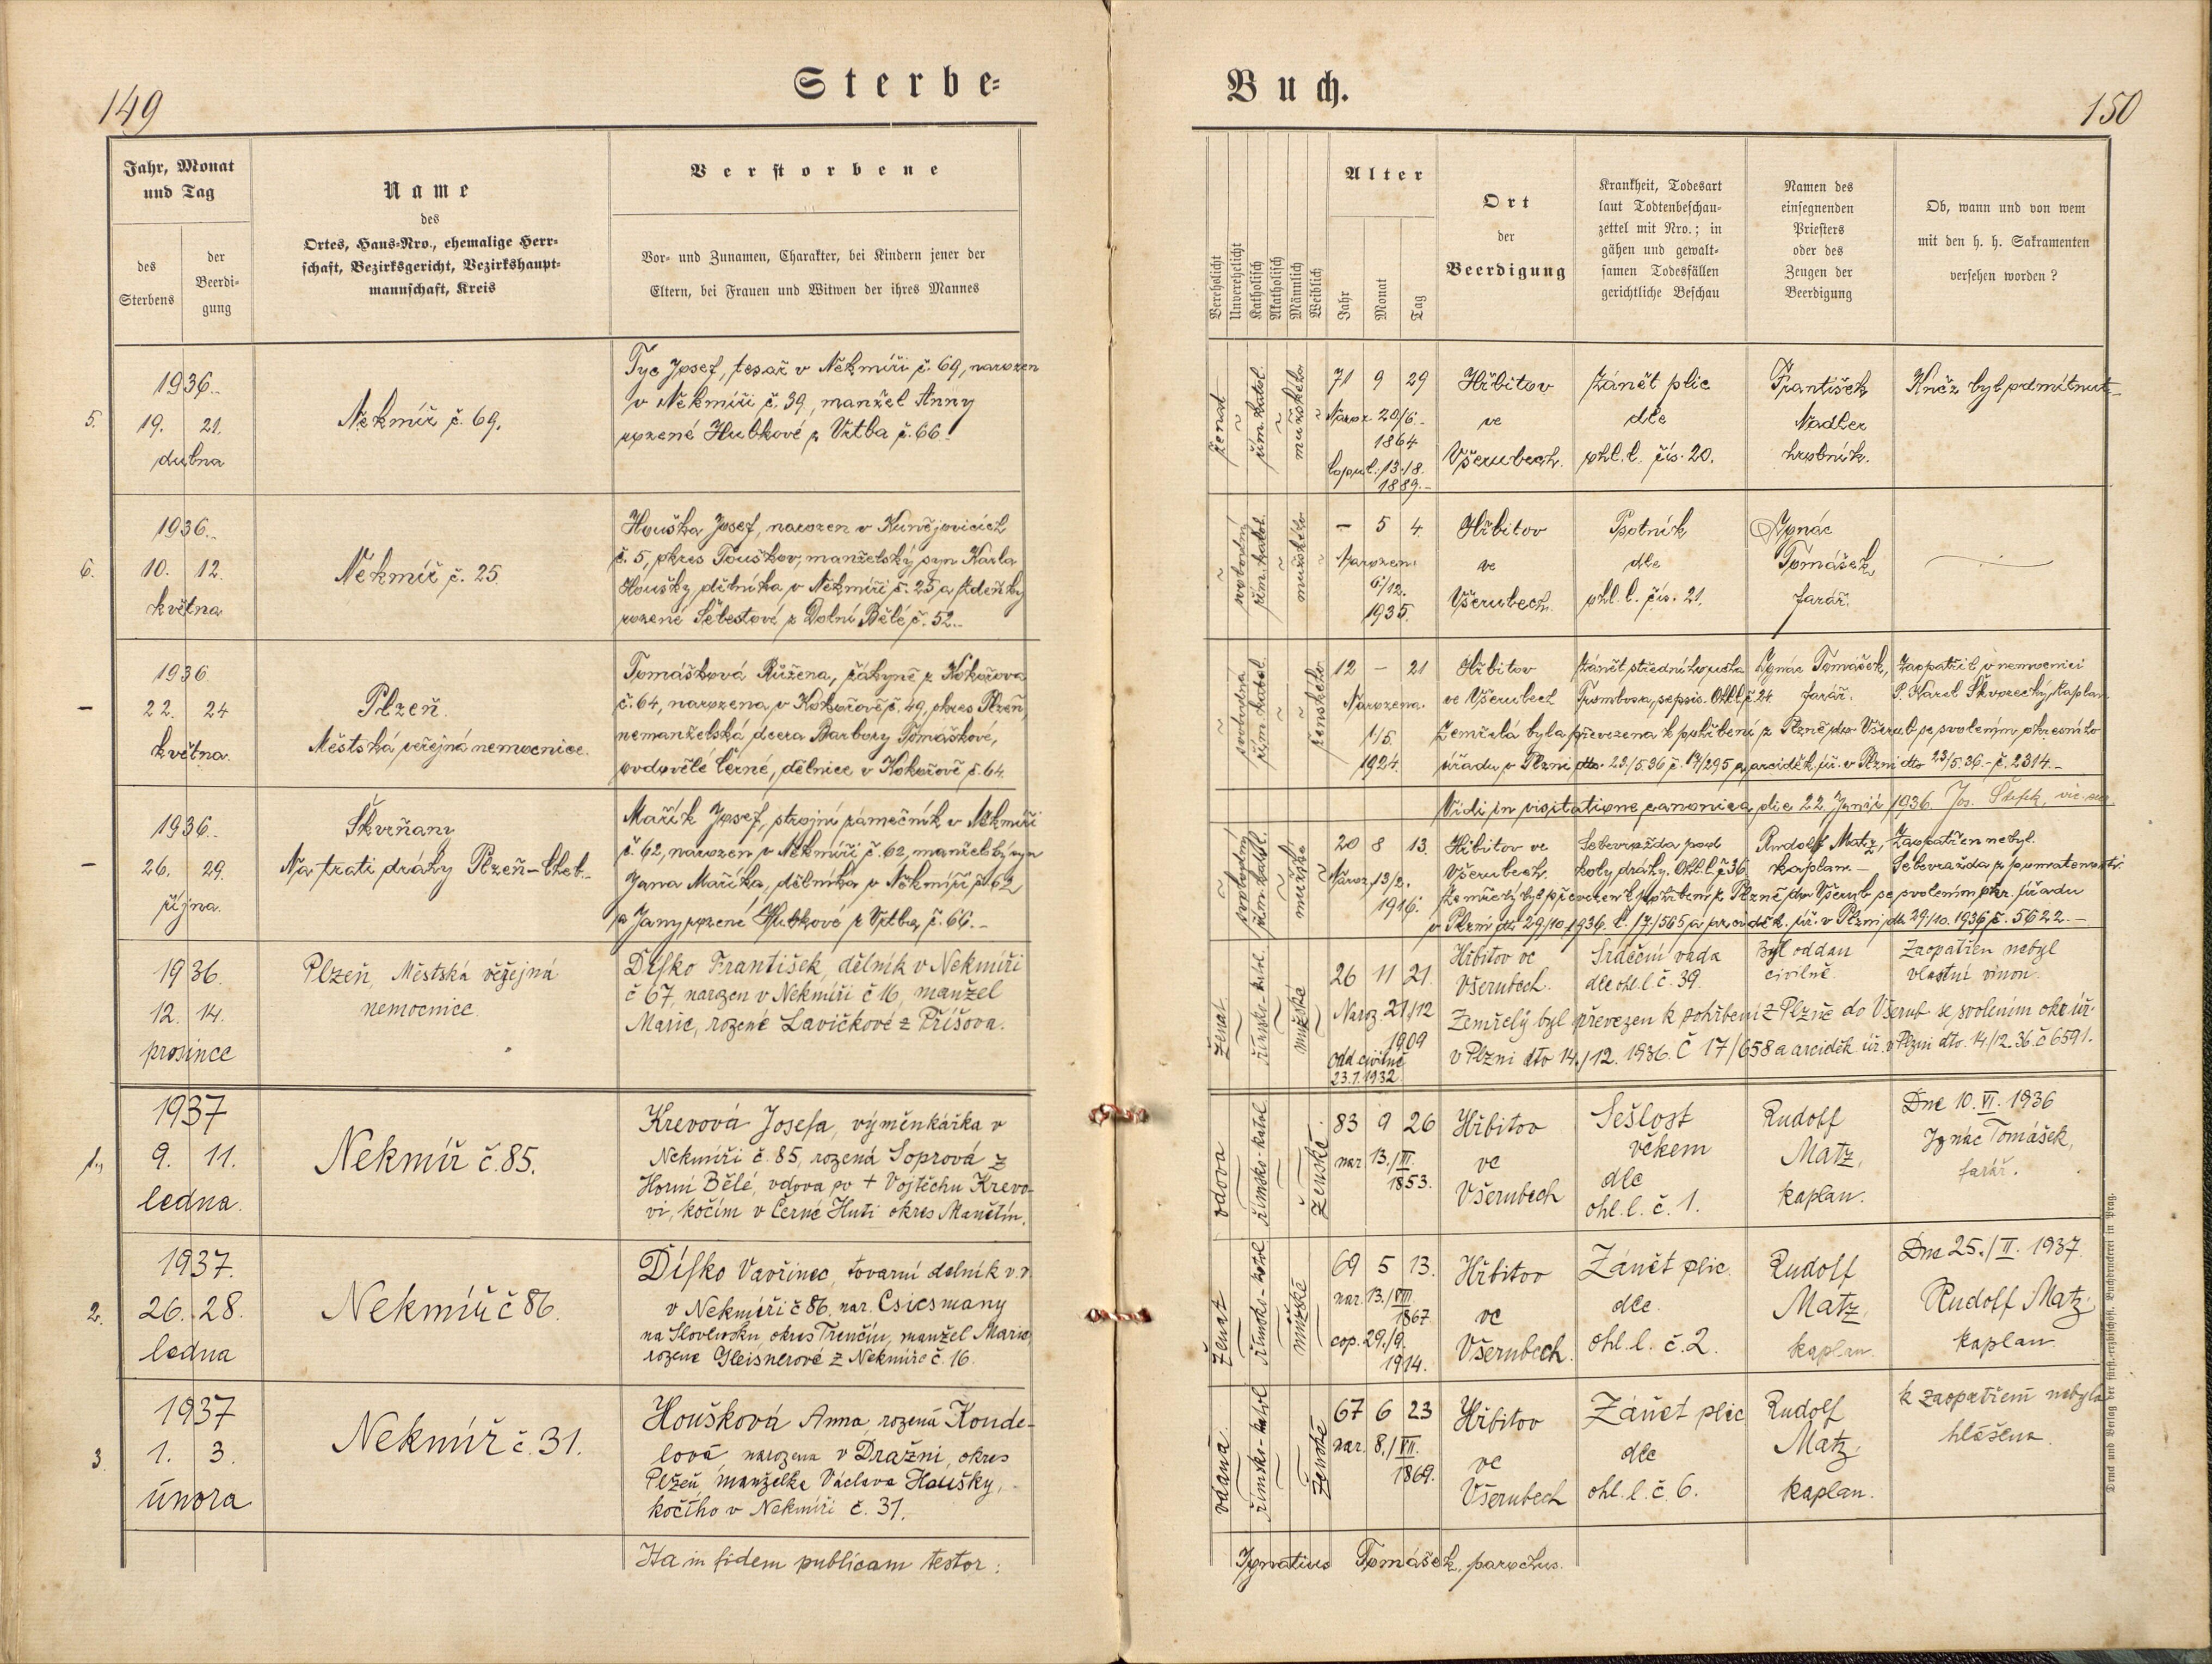 149
Sterbe-
Jahr, Monat
und Tag
des
Sterbens
der
Beerdi-
gung
Name
des
Ortes, Haus-Nro., ehemalige Herr-
schaft, Bezirksgericht, Bezirkshaupt-
mannschaft, Kreis
Verstorbene
Vor- und Zunamen, Charakter, bei Kindern jener der
Eltern, bei Frauen und Witwen der ihres Mannes
5.
1936.
19. 21.
dubna
Nekmíř č. 69.
Tyc Josef, tesař v Nekmíři č. 69, narozen
v Nekmíři č. 39, manžel Anny
rozené Hubkové z Vrtba č. 66.
6.
1936.
10. 12.
května
Nekmíř č. 25.
Houška Josef, narozen v Kunějovicích
č. 5, okres Touškov, manželský syn Karla
Houšky, dělníka v Nekmíři č. 25 a Zdeňky
rozené Šebestové z Dolní Bělé č. 52.
–
1936
22. 24
května
Plzeň.
Městská veřejná nemocnice.
Tomášková Růžena, žákyně z Kokořova
č. 64, narozena v Kokořově č. 49, okres Plzeň,
nemanželská dcera Barbory Tomáškové,
ovdovělé Černé, dělnice v Kokořově č. 64.
–
1936.
26. 29.
října.
Škvrňany
Na trati dráhy Plzeň-Cheb.
Mařík Josef, strojní zámečník v Nekmíři
č. 62, narozen v Nekmíři č. 62, manželský syn
Jana Maříka, dělníka v Nekmíři č. 62
a Jany rozené Hubkové z Vrtba č. 66.-
1936.
12. 14.
prosince
Plzeň, Městská veřejná
nemocnice.
Diško František, dělník v Nekmíři
č 67, narozen v Nekmíři č 16, manžel
Marie, rozené Lavičkové z Příšova.
1.
1937
9. 11.
ledna.
Nekmíř č. 85.
Krevová Josefa, výměnkářka v
Nekmíři č. 85, rozená Soprová z
Horní Bělé, vdova po + Vojtěchu Krevo-
vi, kočím v Černé Huti okres Manětín.
2.
1937.
26. 28.
ledna
Nekmíř č 86.
Diško Vavřinec, tovarní dělník v.v.
v Nekmíři č 86, nar. Csicsmany
na Slovensku, okres Trenčín, manžel Marie,
rozené Gleisnerové z Nekmíře č. 16.
3.
1937
1. 3.
února
Nekmíř č. 31.
Houšková Anna, rozená Koude-
lová, narozena v Dražni, okres
Plzeň, manželka Václava Houšky,
kočího v Nekmíři č. 31.
Ita in fidem publicam testor:
Buch.
150
Verehelicht
Unverehelicht
Katholisch
Akatholisch
Männlich
Weiblich
Alter
Jahr
Monat
Tag
Ort
der
Beerdigung
Krankheit, Todesart
laut Todtenbeschau-
zettel mit Nro.; in
gähen und gewalt-
samen Todesfällen
gerichtliche Beschau
Namen des
einsegnenden
Priesters
oder des
Zeugen der
Beerdigung
Ob, wann und von wem
mit den h. h. Sakramenten
versehen worden?
ženat
řím. katol.
mužského
71 9 29
Naroz. 20/6.
1864
Copul. 13./8.
1889.-
Hřbitov
ve
Všerubech.
Zánět plic
dle
ohl. l. čís. 20.
František
Nadler
hrobník.
Kněz byl odmítnut
svobodný
řím. katol.
mužského
– 5 4.
Narozen
6/12.
1935.
Hřbitov
ve
Všerubech.
Psotník
dle
ohl. l. čís. 21.
Ignác
Tomášek,
farář.
svobodná
řím. katol.
ženského
12 – 21
Narozena.
1/5.
1924.
Hřbitov
ve Všerubech
Zánět středního ucha
Trombosa, sepsis. Ohl. l. č 24.
Ignác Tomášek,
farář.
Zaopatřil v nemocnici
P. Karel Škvorecký, kaplan
Zemřelá byla převezena k pohřbení z Plzně do Všerub se svolením okresního
úřadu v Plzni dto. 23/5.36 č. 17/295 a arciděk. úř. v Plzni dto 23/5.36.- č. 2314.-
Vidi in visitatione canonica die 22. Junii 1936.
svobodný
řím. katol.
mužské
20 8 13.
Naroz. 13/2.
1916.
Hřbitov ve
Všerubech.
Sebevražda pod
koly dráhy. Ohl. l. č 36
Rudolf Matz,
kaplan.-
Zaopatřen nebyl.
Sebevražda z pomatenosti.
Zemřelý byl převezen k pohřbení z Plzně do Všerub se svolením okr. úřadu
v Plzni dto 29/10.1936. č. 17/565 a arciděk. úř. v Plzni dto 29/10.1936 č. 5622.-
ženat
římsko-katol.
mužské
26 11 21.
Naroz. 21/12
1909
Odd civilně
23.7.1932
Hřbitov ve
Všerubech.
Srdeční vada
dle ohl. l. č. 39.
Byl oddán
civilně.
Zaopatřen nebyl
vlastní vinou.
Zemřelý byl převezen k pohřbení z Plzně do Všerub se svolením okr. úř.
v Plzni dto 14./12.1936. Č 17/658 a arciděk. úř. v Plzni dto. 14/12.36. č 6591.
vdova
římsko-katol
ženské.
83 9 26
nar 13./III.
1853.
Hřbitov
ve
Všerubech
Sešlost
věkem
dle
ohl. l. č. 1.
Rudolf
Matz,
kaplan.
Dne 10. VI. 1936
Ignác Tomášek,
farář.
ženat
římsko-katol
mužské
69 5 13.
nar. 13./VIII
1867
cop. 29./9.
1914.
Hřbitov
ve
Všerubech.
Zánět plic.
dle
ohl. l. č. 2.
Rudolf
Matz,
kaplan.
Dne 25./II. 1937.
Rudolf Matz,
kaplan
vdaná.
římsko-katol
ženské
67 6 23
nar. 8./VII.
1869.
Hřbitov
ve
Všerubech
Zánět plic
dle
ohl. l. č. 6.
Rudolf
Matz,
kaplan.
k zaopatření nebyla
hlášena.
Ignatius Tomášek, parochus.
Druck und Verlag der fürst.-erzbischöfl. Buchdruckerei in Prag.